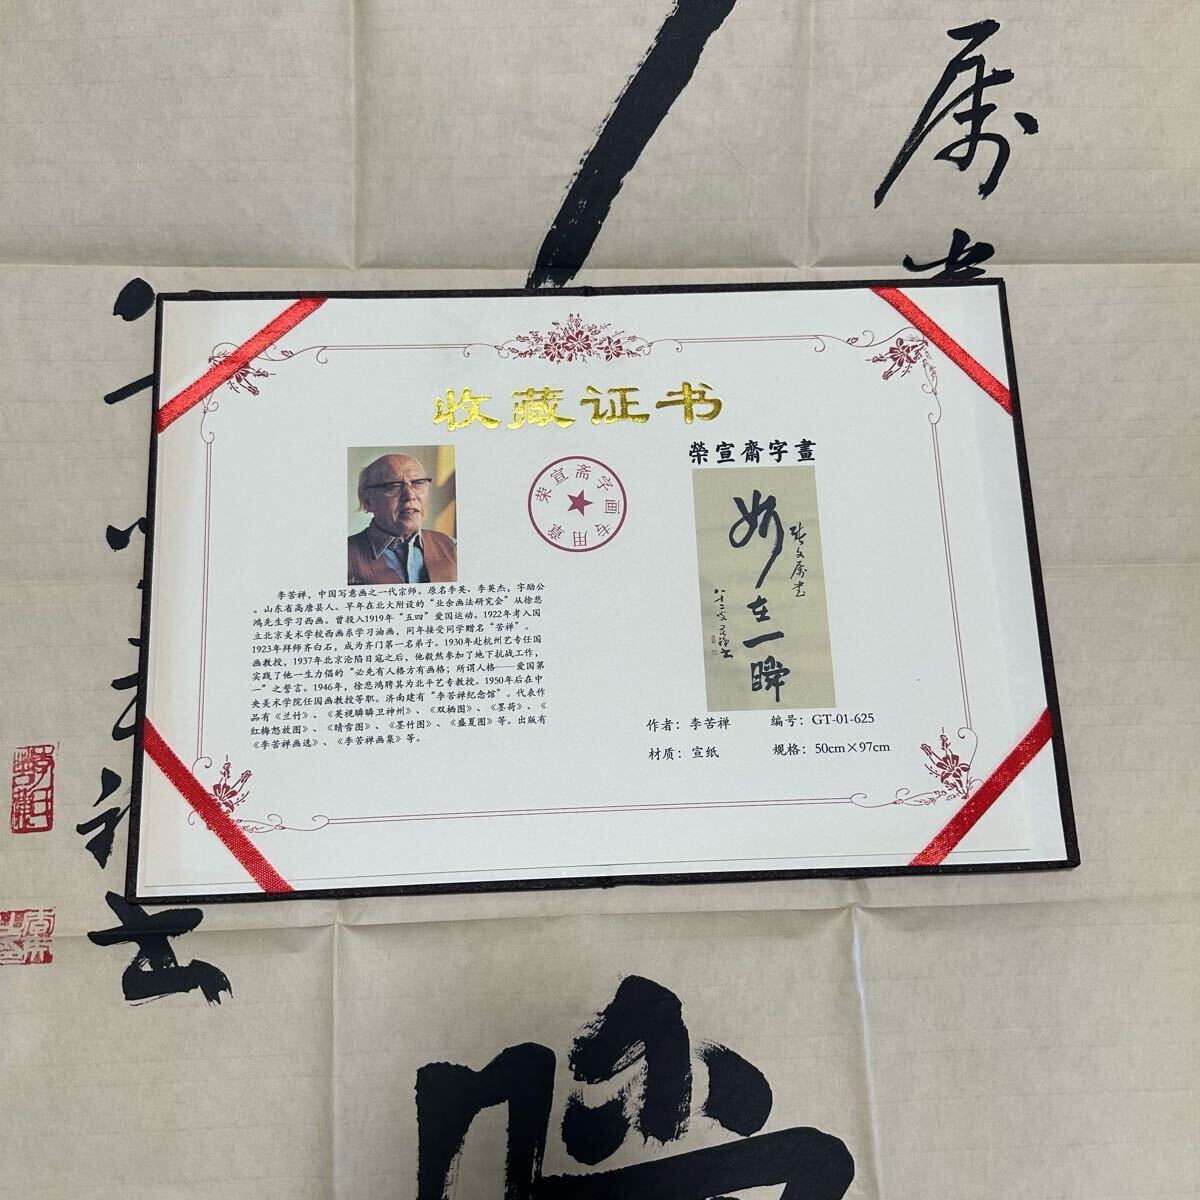 属
书
收藏证书
荣宣斋字画专用章
榮宣齋字畫
妙在一瞬
李苦禅，中国写意画之一代宗师。原名李英、李英杰，字励公
。山东省高唐县人。早年在北大附设的“业余画法研究会”从徐悲
鸿先生学习西画。曾投入1919年“五四”爱国运动。1922年考入国
立北京美术学校西画系学习油画，同年接受同学赠名“苦禅”。
1923年拜师齐白石，成为齐门第一名弟子。1930年赴杭州艺专任国
画教授，1937年北京沦陷日寇之后，他毅然参加了地下抗战工作，
实践了他一生力倡的“必先有人格方有画格；所谓人格——爱国第
一”之誓言。1946年，徐悲鸿聘其为北平艺专教授。1950年后在中
央美术学院任国画教授等职。济南建有“李苦禅纪念馆”。代表作
品有《兰竹》、《英视瞵瞵卫神州》、《双栖图》、《墨荷》、《
红梅怒放图》、《晴雪图》、《墨竹图》、《盛夏图》等。出版有
《李苦禅画选》、《李苦禅画集》等。
作者：李苦禅 编号：GT-01-625
材质：宣纸 规格：50cm×97cm